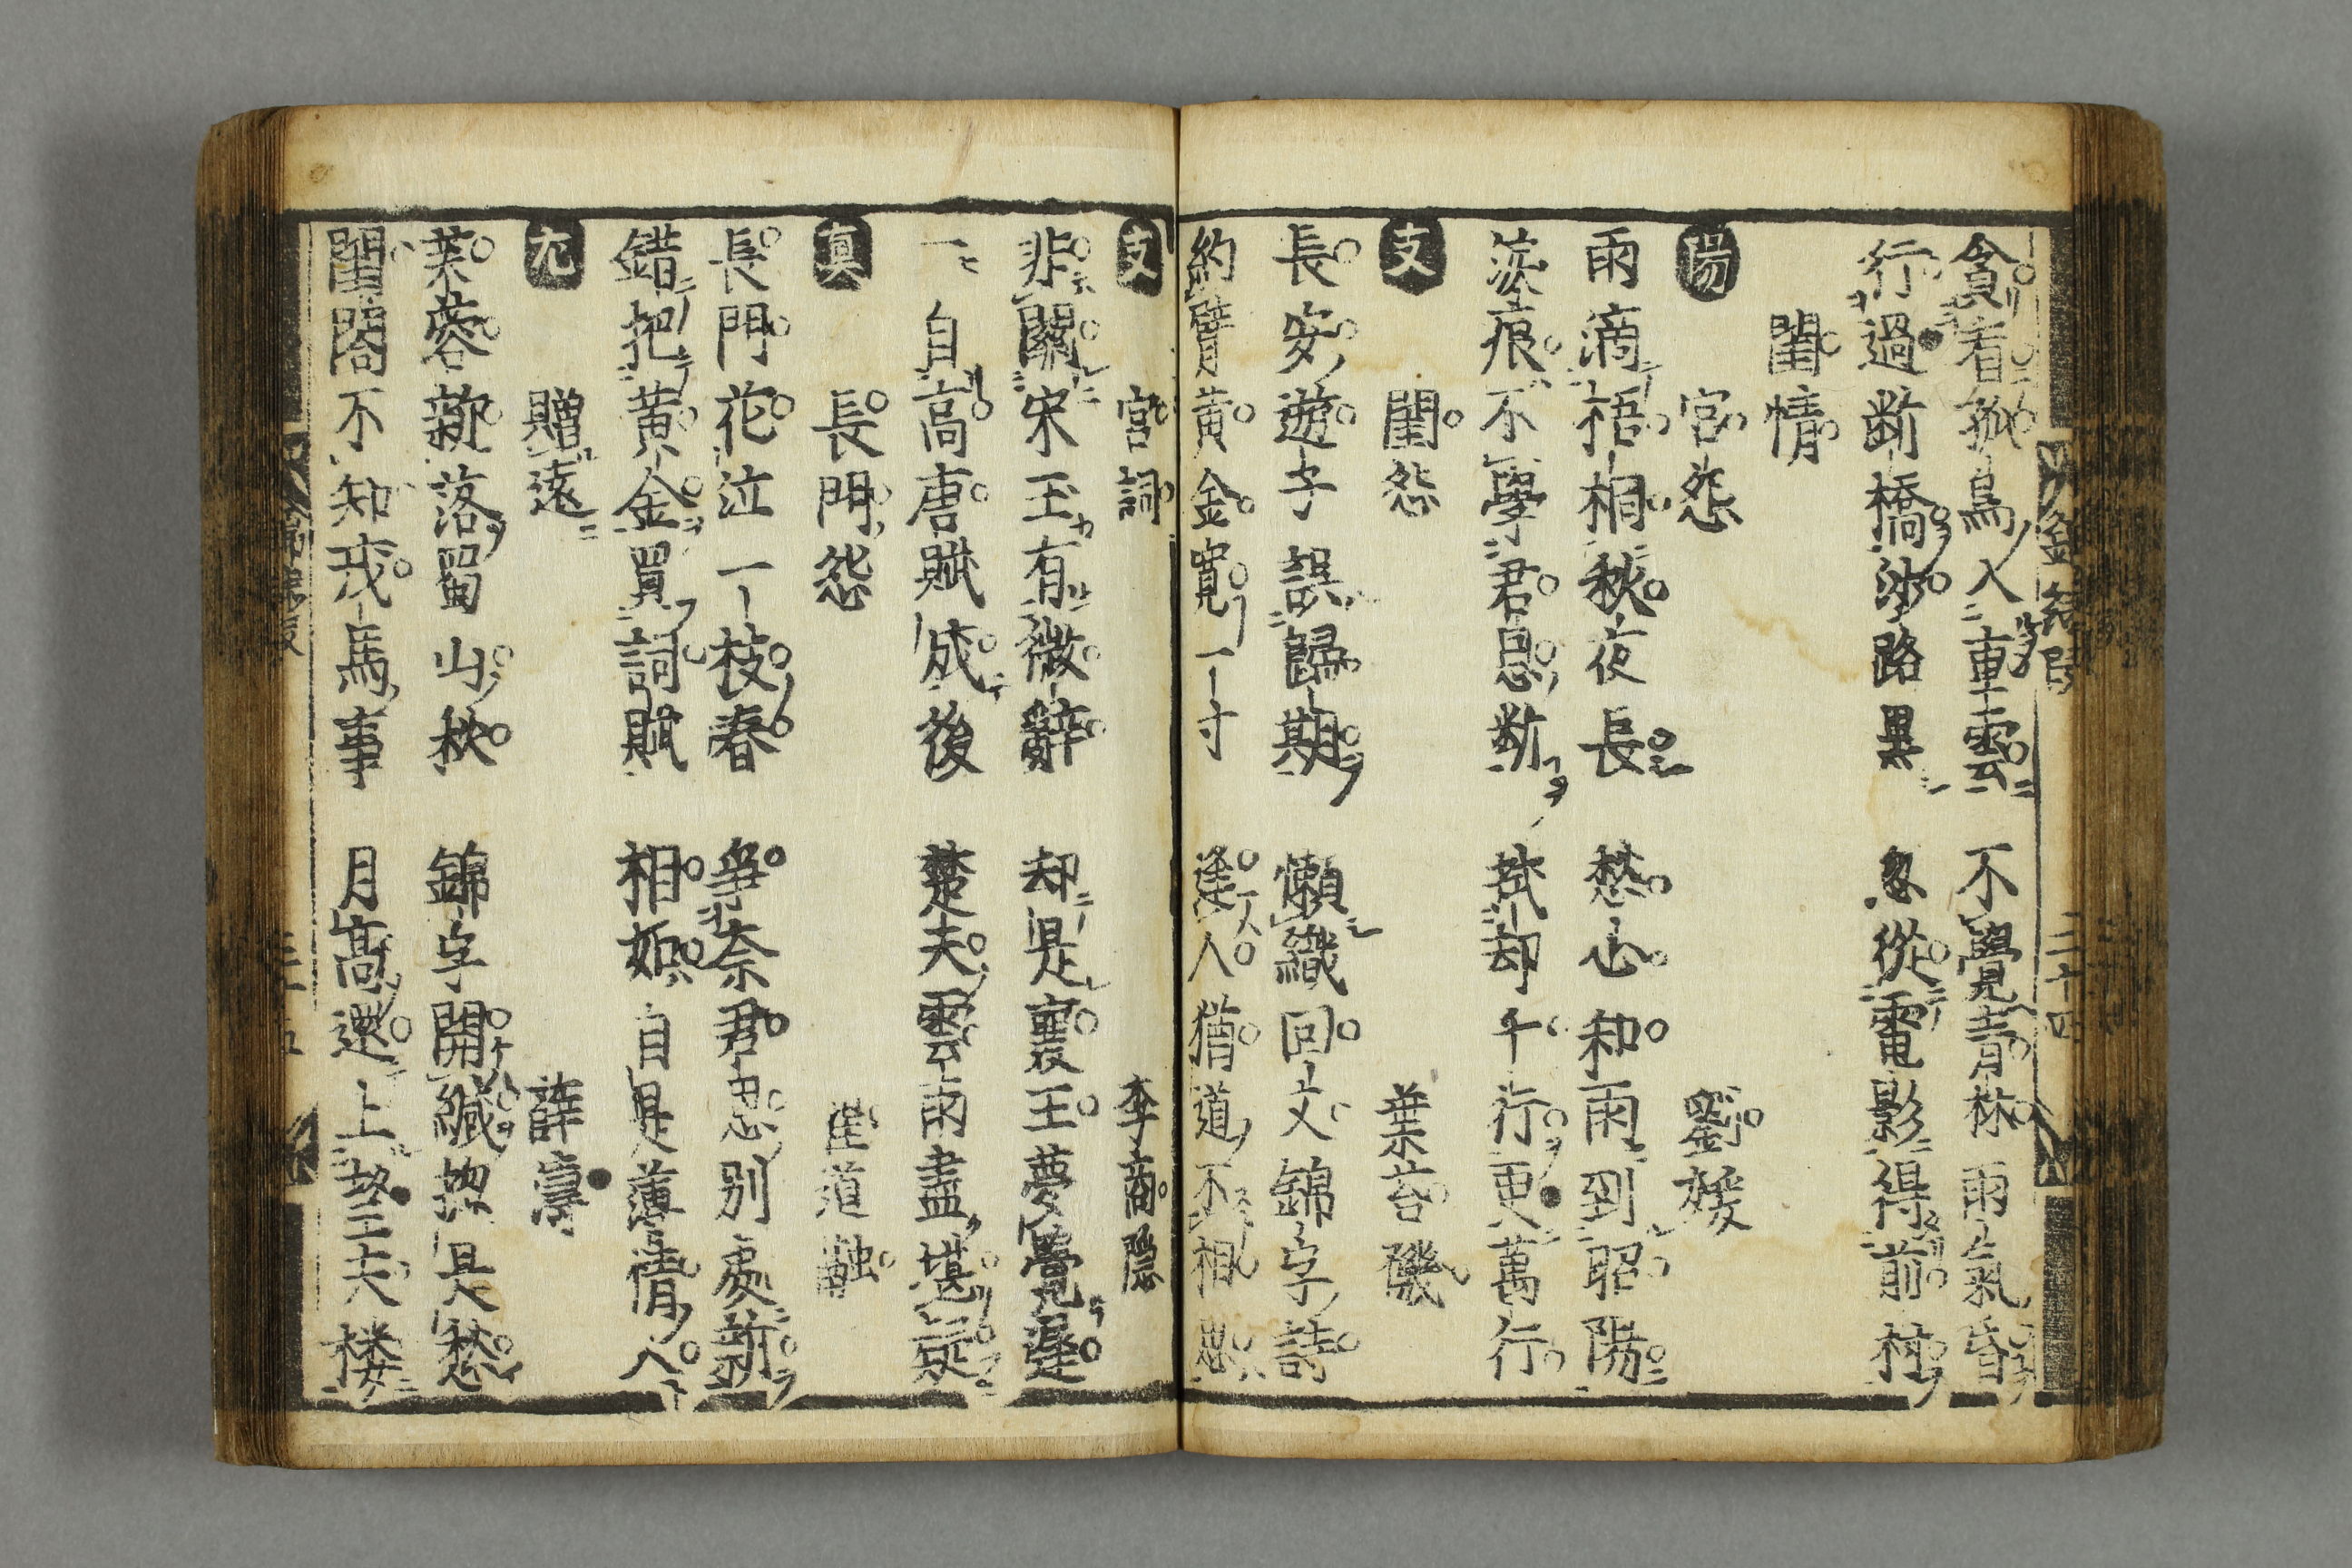 貪看孤鳥入重雲　不覺青林雨氣昏
行過断橋沙路黒　忽從電影得前村
閨情
陽　宮怨　劉媛
雨滴梧桐秋夜長　愁心和雨到昭陽
淚痕不學君恩断　拭却千行更萬行
支　閨怨　葉苔磯
長安遊子誤歸期　懶織回文錦字詩
約臂黄金寬一寸　逢人猶道不相思
支　宮詞　李商隱
非關宋玉有微辭　却是襄王夢覺遲
一自高唐賦成後　楚夫雲雨盡堪疑
真　長門怨　崔道融
長門花泣一枝春　爭奈君恩別處新
錯把黄金買詞賦　相如自是薄情人
尤　贈遠　薛濤
芙蓉新落蜀山秋　錦字開緘到是愁
閨閣不知戎馬事　月高還上望夫楼
三十四